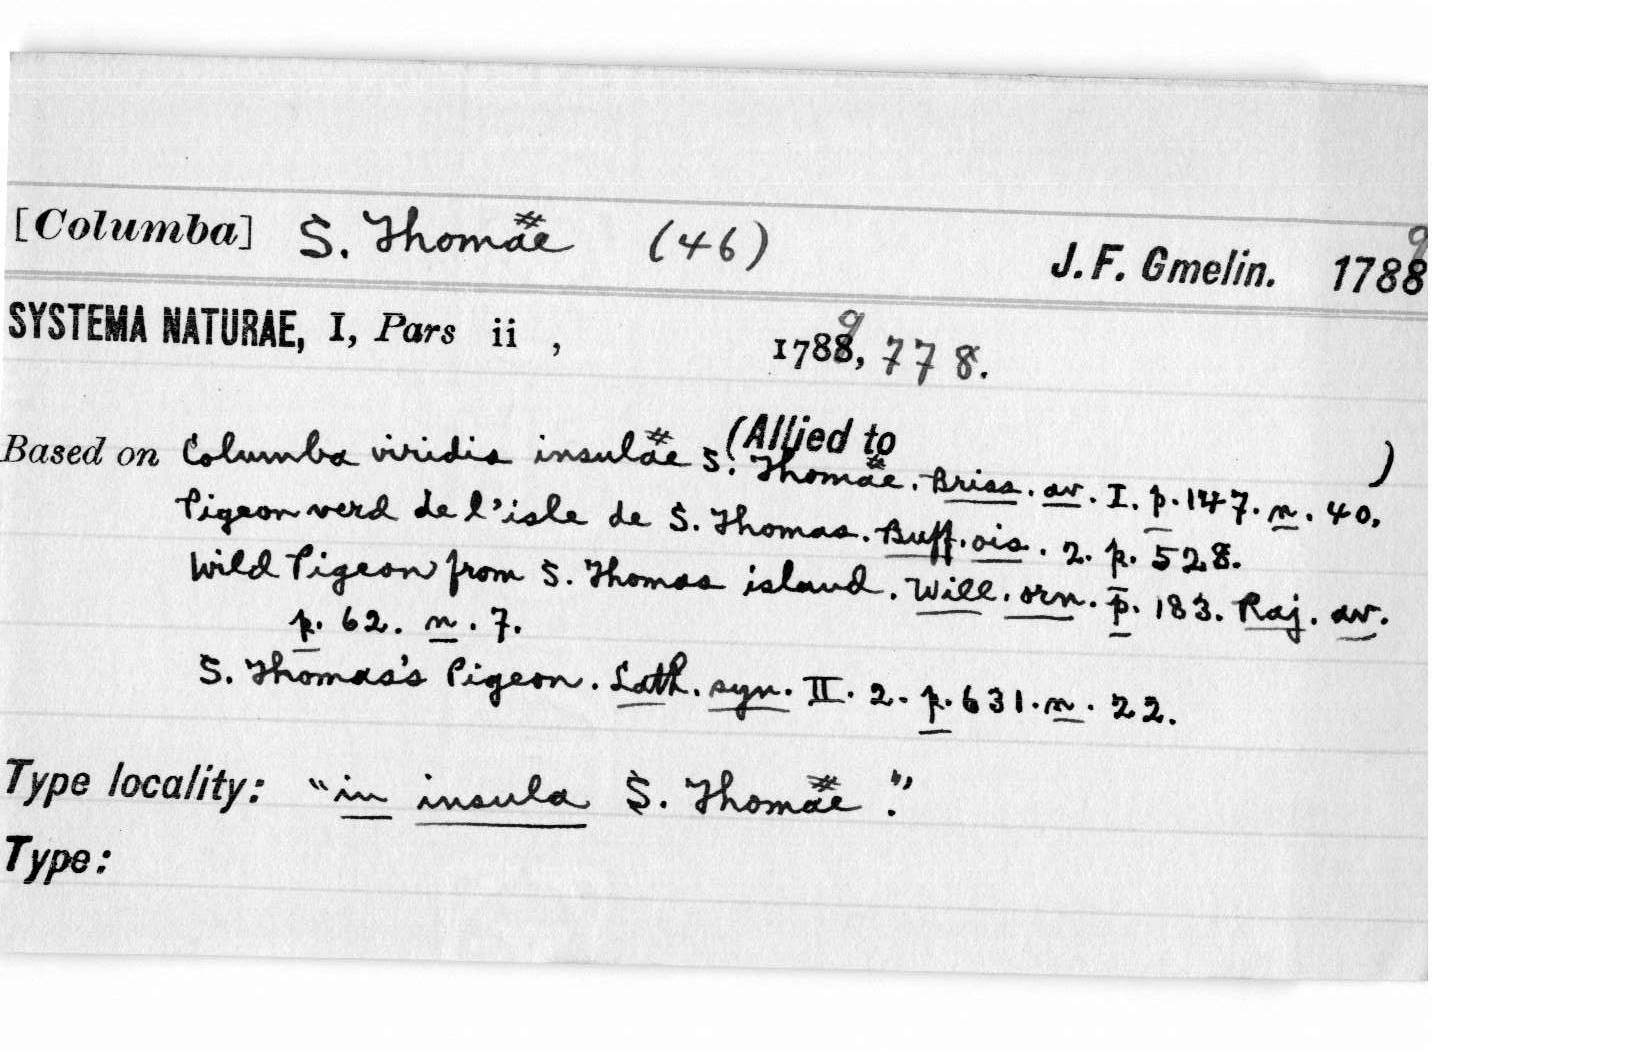 [Columba] S. Thomæ# (46) J. F. Gmelin. 17889
SYSTEMA NATURAE, I, Pars ii , 17889, 778.
(Allied to )
Based on Columba viridis insulæ# S. Thomæ#. Briss. av. I. p. 147. n. 40.
Pigeon verd de l'isle de S. Thomas. Buff. ois. 2. p. 528.
Wild Pigeon from S. Thomas island. Will. orn. p. 183. Raj. av.
p. 62. n. 7.
S. Thomas's Pigeon. Lath. syn. II. 2. p. 631. n. 22.
Type locality: "in insula S. Thomæ#."
Type: